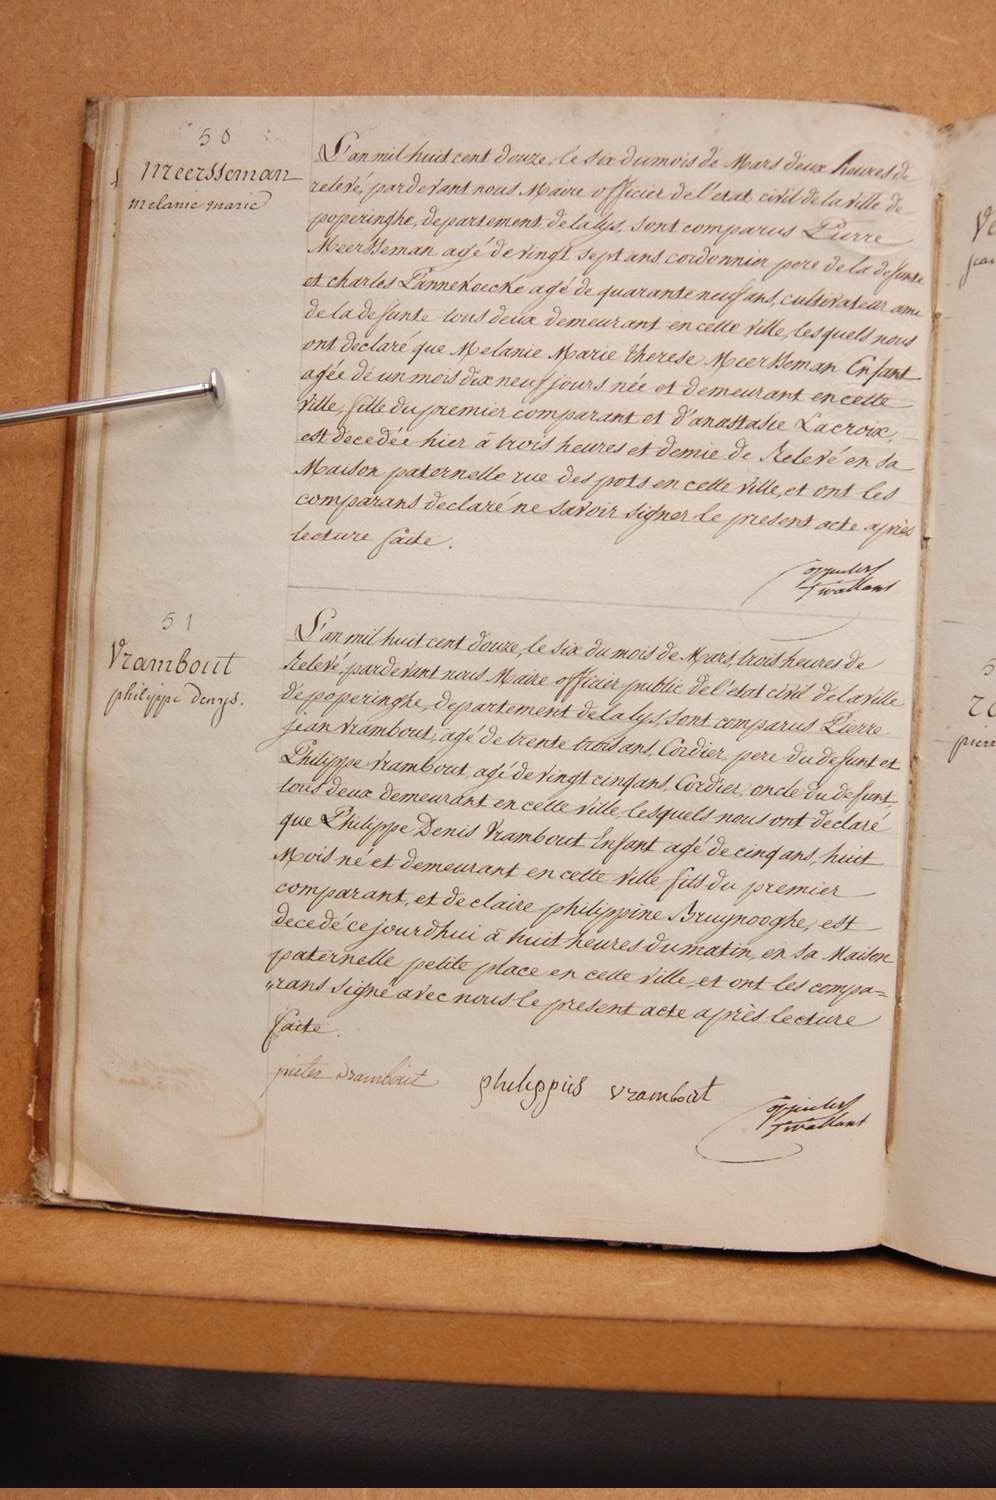 50
Meersseman
melanie marie
L'an mil huit cent douze, le six du mois de Mars deux heures de
relevé, pardevant nous Maire officier de l'etat civil de la ville de
poperinghe, departement de la lys, sont comparus Pierre
Meersseman agé de vingt sept ans cordonnier pere de la defunte
et charles Pannekoecke agé de quarante neuf ans, cultivateur ami
de la defunte tous deux demeurant en cette ville, lesquels nous
ont declaré que Melanie Marie therese Meersseman Enfant
agée de un mois dix neuf jours née et demeurant en cette
ville, fille du premier comparant et d'anastasie Lacroix,
est decedée hier à trois heures et demie de Relevé en sa
Maison paternelle rue des pots en cette ville, et ont les
comparans declaré ne savoir signer le present acte après
lecture faite.
51
Vrambout
philippe denys.
L'an mil huit cent douze, le six du mois de Mars, trois heures de
Relevé, pardevant nous Maire officier public de l'etat civil de la ville
de poperinghe, departement de la lys, sont comparus Pierre
jean Vrambout, agé de trente trois ans, Cordier pere du defunt et
Philippe Vrambout, agé de vingt cinq ans, Cordier, oncle du defunt,
tous deux demeurant en cette ville, lesquels nous ont declaré
que Philippe Denis Vrambout Enfant agé de cinq ans, huit
Mois né et demeurant en cette ville fils du premier
comparant, et de claire philippine Bruynooghe, est
decedé cejourdhui à huit heures du matin, en sa Maison
paternelle petite place en cette ville, et ont les compa=
"rans signé avec nous le present acte après lecture
faite.
pieter vrambout philippus vrambout